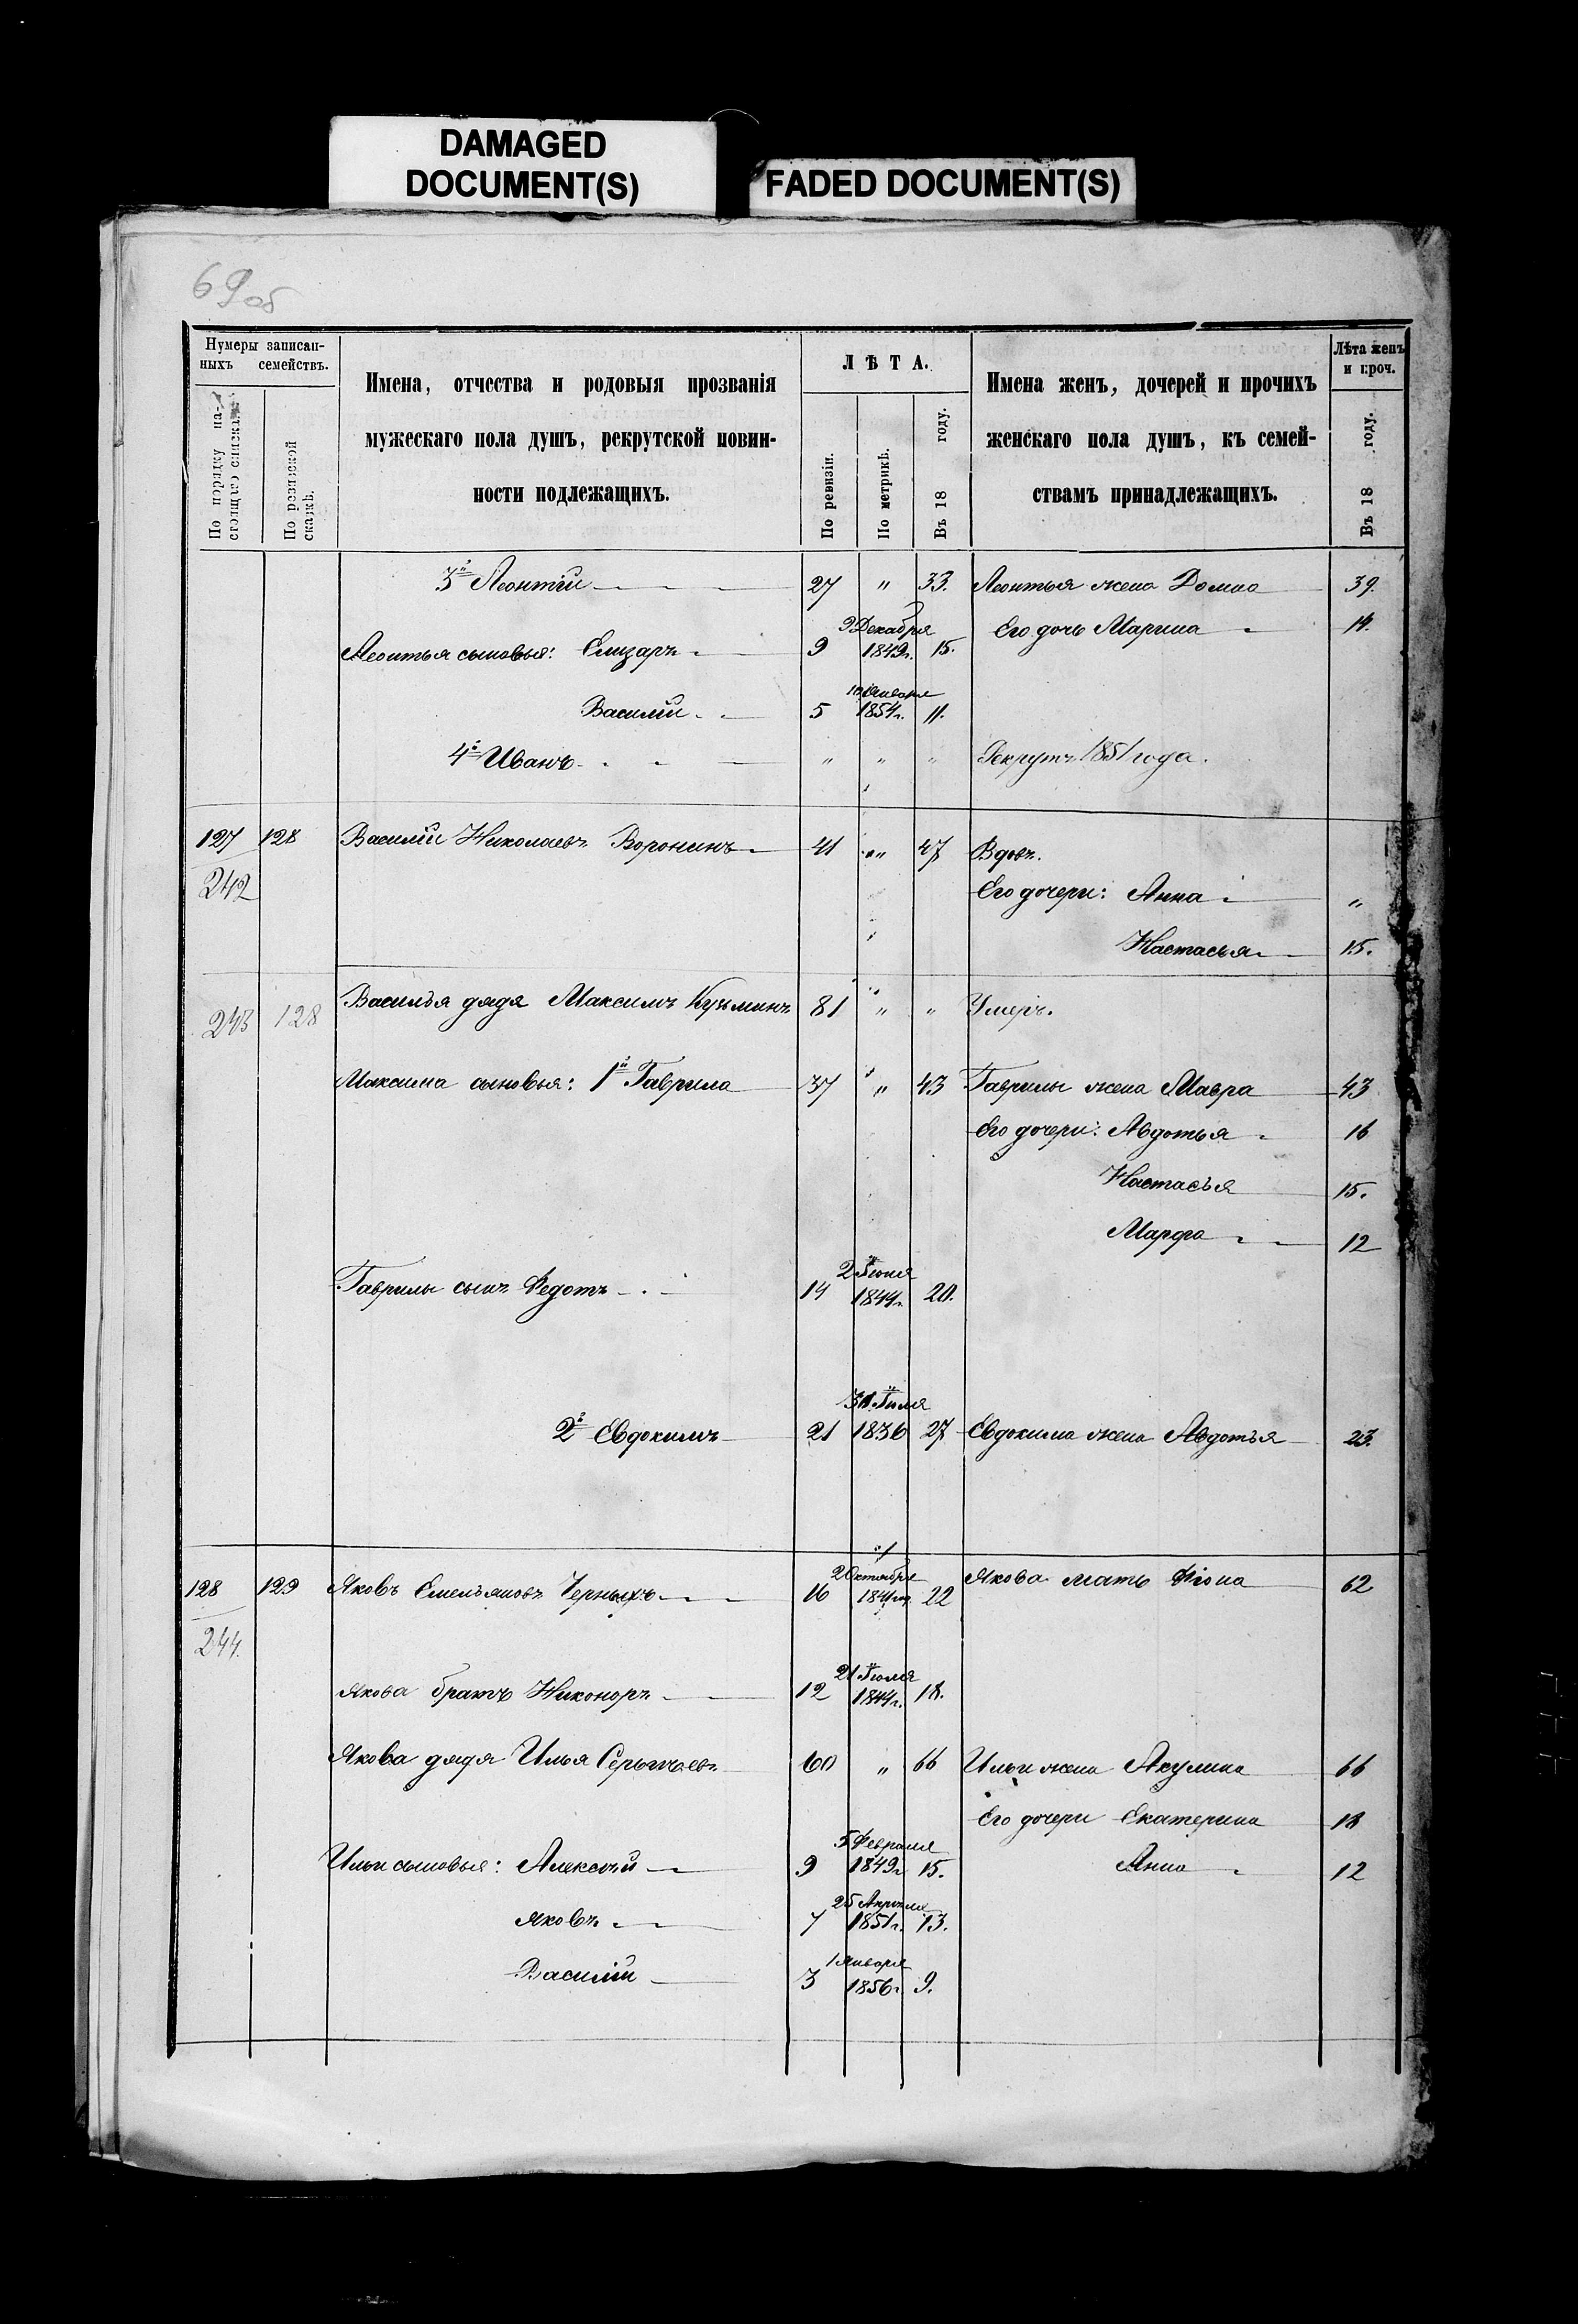 DAMAGED
DOCUMENT(S)
FADED DOCUMENT(S)
69об
Нумеры записан-
ныхъ семействъ.
По порядку на-
стоящаго списка.
По ревизской
сказкѣ.
Имена, отчества и родовыя прозванія
мужескаго пола душъ, рекрутской повин-
ности подлежащихъ.
ЛѢТА.
По ревизіи.
По метрикѣ.
Въ 18 году.
Имена женъ, дочерей и прочихъ
женскаго пола душъ, къ семей-
ствамъ принадлежащихъ.
Лѣта женъ
и проч.
Въ 18 году.
3й Леонтій 27 " 33. Леонтья жена Домна 39.
Его дочь Марина 14.
Леонтья сыновья: Елизаръ 9 9 Декабря 1849г. 15.
Василій 5 1854г. 11.
4й Иванъ " " " Рекрутъ 1851 года.
127 128 Василій Николаевъ Воронинъ 41 " 47 Вдовъ.
242 Его дочери: Анна "
Настасья 15.
243 128 Василья дядя Максимъ Кузьминъ 81 " " Умеръ.
Максима сыновья: 1й Гаврила 37 " 43 Гаврилы жена Мавра 43
Его дочери: Авдотья 16
Настасья 15.
Марфа 12
Гаврилы сынъ Федотъ 14 2 Іюня 1844г. 20.
2й Евдокимъ 21 1836 27 Евдокима жена Авдотья 23.
128 129 Яковъ Емельяновъ Черныхъ 16 2 Октября 1841 22 Якова мать Фіона 62
244.
Якова братъ Никоноръ 12 21 Іюля 1844г. 18.
Якова дядя Илья 60 " 66 Ильи жена Акулина 66
Его дочери Екатерина 18
Ильи сыновья: Алексѣй 9 5 Февраля 1849г. 15. Анна 12
Яковъ 7 25 Апрѣля 1851г. 13.
Василій 3 1 Января 1856г. 9.